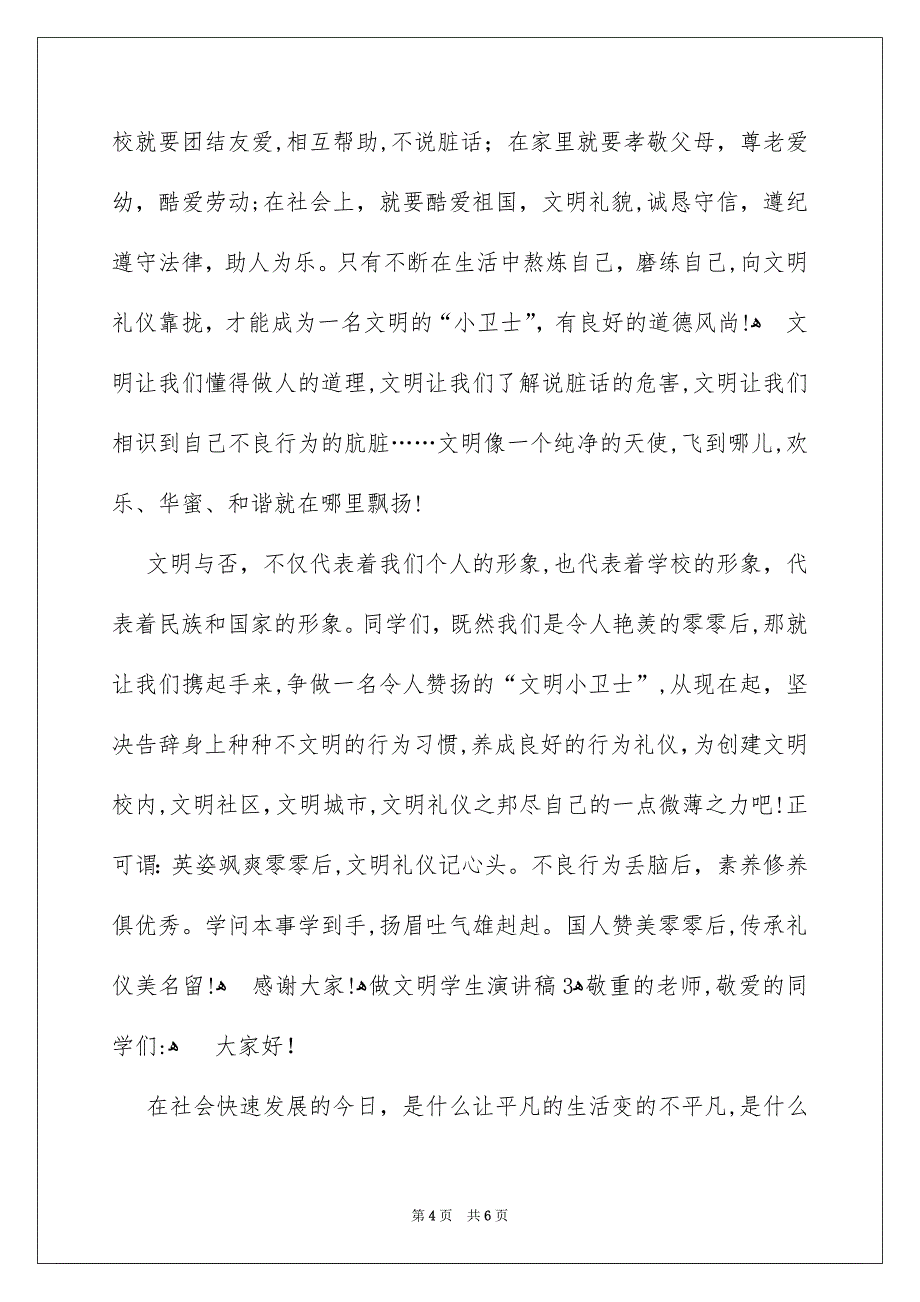 校就要团结友爱,相互帮助,不说脏话；在家里就要孝敬父母，尊老爱
幼，酷爱劳动;在社会上，就要酷爱祖国，文明礼貌,诚恳守信，遵纪
遵守法律，助人为乐。只有不断在生活中熬炼自己，磨练自己,向文明
礼仪靠拢，才能成为一名文明的“小卫士”，有良好的道德风尚!ﻫ　文
明让我们懂得做人的道理,文明让我们了解说脏话的危害,文明让我们
相识到自己不良行为的肮脏……文明像一个纯净的天使,飞到哪儿,欢
乐、华蜜、和谐就在哪里飘扬!
文明与否，不仅代表着我们个人的形象,也代表着学校的形象，代
表着民族和国家的形象。同学们，既然我们是令人艳羡的零零后,那就
让我们携起手来,争做一名令人赞扬的“文明小卫士”,从现在起，坚
决告辞身上种种不文明的行为习惯,养成良好的行为礼仪,为创建文明
校内,文明社区,文明城市,文明礼仪之邦尽自己的一点微薄之力吧!正
可谓：英姿飒爽零零后,文明礼仪记心头。不良行为丢脑后，素养修养
俱优秀。学问本事学到手,扬眉吐气雄赳赳。国人赞美零零后,传承礼
仪美名留!ﻫ　感谢大家!ﻫ做文明学生演讲稿 3ﻫ敬重的老师,敬爱的同
学们:ﻫ　大家好！
在社会快速发展的今日，是什么让平凡的生活变的不平凡,是什么
第 4 页　共 6 页